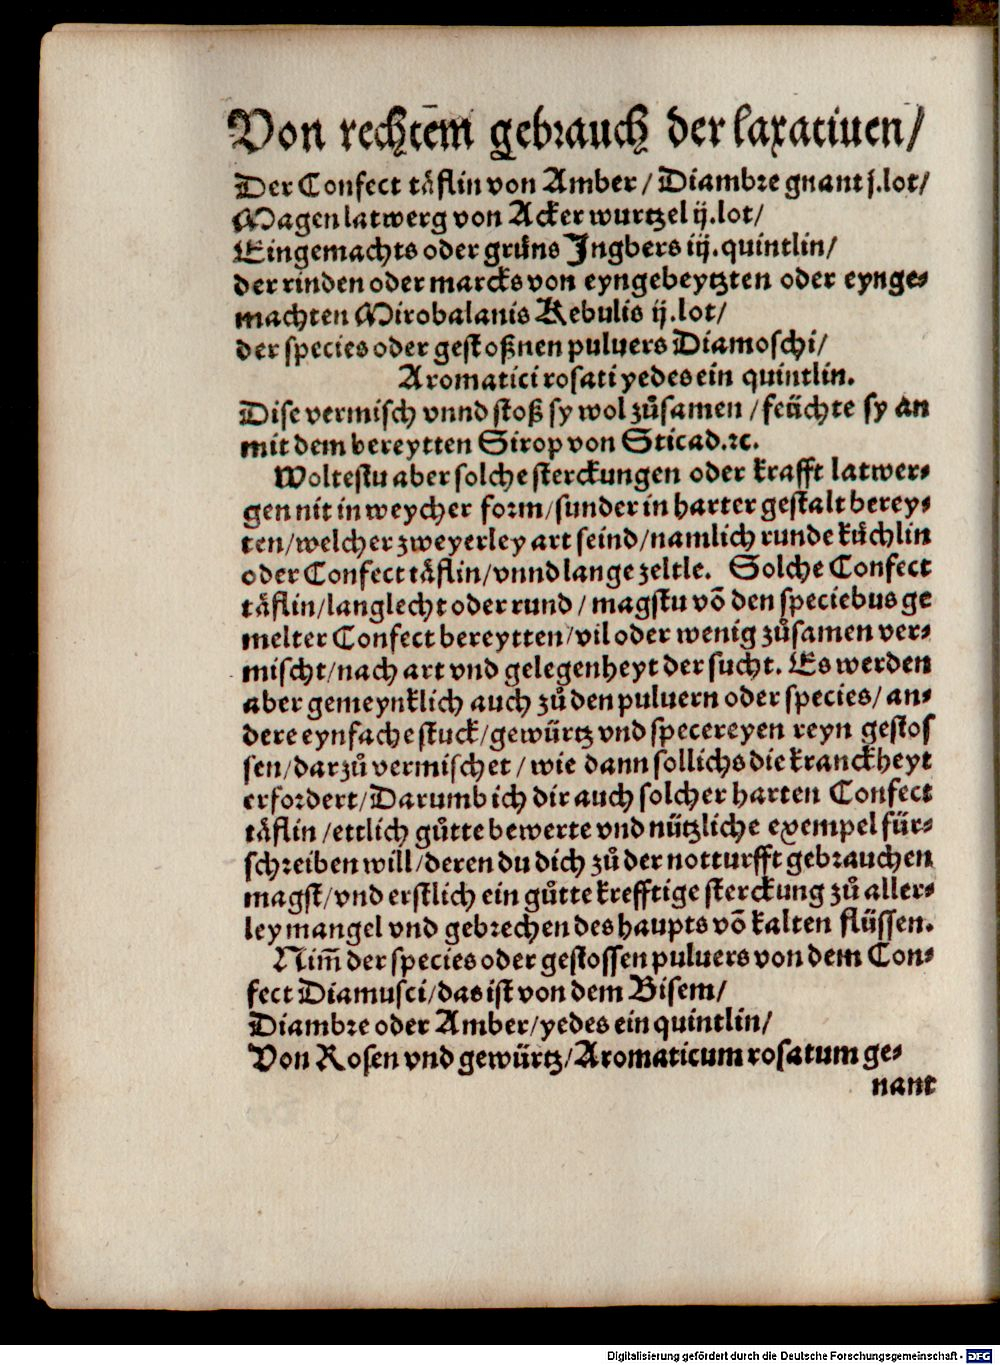 Von rechtem̄ gebrauch der laxatiuen/
Der Confect täflin von Amber / Diambre gnant j.lot/
Magen latwerg von Acker wurtzel ij.lot/
Eingemachts oder grüns Jngbers iij.quintlin/
der rinden oder marcks von eyngebeytzten oder eynge⸗
machten Mirobalanis Kebulis ij.lot/
der species oder gestoßnen puluers Diamoschi/
Aromatici rosati yedes ein quintlin.
Dise vermisch vnnd stoß sy wol zůsamen /feüchte sy an
mit dem bereytten Sirop von Sticad.ꝛc.
Woltestu aber solche sterckungen oder krafft latwer⸗
gen nit in weycher form/sunder in harter gestalt berey⸗
ten/welcher zweyerley art seind/namlich runde küchlin
oder Confect täflin/vnnd lange zeltle. Solche Confect
täflin/langlecht oder rund / magstu võ den speciebus ge
melter Confect bereytten/vil oder wenig zůsamen ver⸗
mischt/nach art vnd gelegenheyt der sucht. Es werden
aber gemeynklich auch zů den puluern oder species/ an⸗
dere eynfache stuck/gewürtz vnd specereyen reyn gestos
sen/darzů vermischet / wie dann sollichs die kranckheyt
erfordert/Darumb ich dir auch solcher harten Confect
täflin /ettlich gůtte bewerte vnd nützliche exempel für⸗
schreiben will/deren du dich zů der notturfft gebrauchen
magst/vnd erstlich ein gůtte krefftige sterckung zů aller⸗
ley mangel vnd gebrechen des haupts võ kalten flüssen.
Nim̄ der species oder gestossen puluers von dem Con⸗
fect Diamusci/das ist von dem Bisem/
Diambre oder Amber/yedes ein quintlin/
Von Rosen vnd gewürtz/Aromaticum rosatum ge⸗
nant
Digitalisierung gefördert durch die Deutsche Forschungsgemeinschaft - DFG